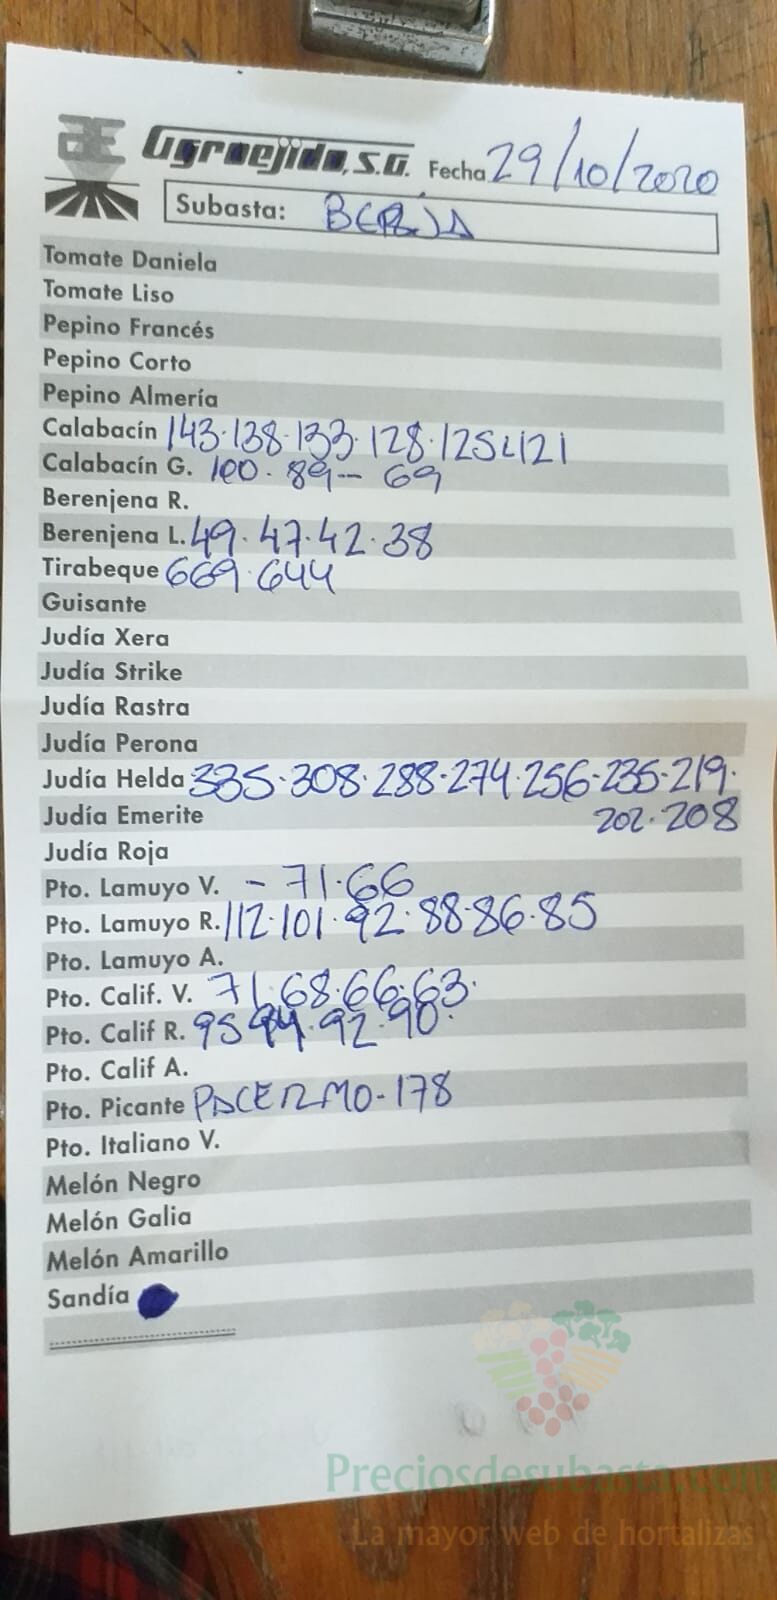 Agroejido, S.A. Fecha 29/10/2020
Subasta: BERJA
Tomate Daniela
Tomate Liso
Pepino Francés
Pepino Corto
Pepino Almería
Calabacín 143·138·133·128·125L121
Calabacín G. 100·89-69
Berenjena R.
Berenjena L. 49·47·42·38
Tirabeque 669·644
Guisante
Judía Xera
Judía Strike
Judía Rastra
Judía Perona
Judía Helda 335·308·288·274·256-235·219·
Judía Emerite 202·208
Judía Roja
Pto. Lamuyo V. - 71·66
Pto. Lamuyo R. 112·101·92·88·86·85
Pto. Lamuyo A.
Pto. Calif. V. 71·68·66·63·
Pto. Calif R. 95 94·92·90·
Pto. Calif A.
Pto. Picante PACERMO-178
Pto. Italiano V.
Melón Negro
Melón Galia
Melón Amarillo
Sandía
Preciosdesubasta.com
La mayor web de hortalizas